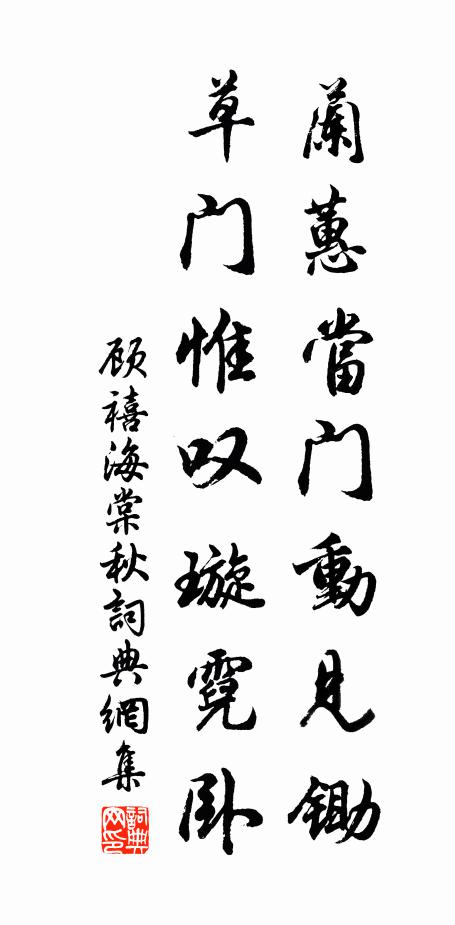 蘭蕙當門動見鋤
草门惟叹璇霓卧
顾禧海棠秋詞典網集
詞典网印